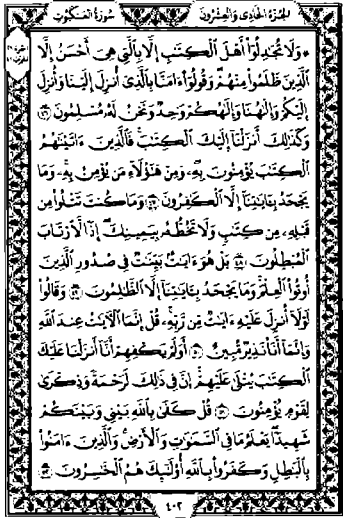 الجزء الحادي والعشرون
سورة العنكبوت
وَلَا تُجَٰدِلُوٓا۟ أَهْلَ ٱلْكِتَٰبِ إِلَّا بِٱلَّتِى هِىَ أَحْسَنُ إِلَّا
ٱلَّذِينَ ظَلَمُوا۟ مِنْهُمْ وَقُولُوٓا۟ ءَامَنَّا بِٱلَّذِىٓ أُنزِلَ إِلَيْنَا وَأُنزِلَ
إِلَيْكُمْ وَإِلَٰهُنَا وَإِلَٰهُكُمْ وَٰحِدٌ وَنَحْنُ لَهُۥ مُسْلِمُونَ ٤٦
وَكَذَٰلِكَ أَنزَلْنَآ إِلَيْكَ ٱلْكِتَٰبَ فَٱلَّذِينَ ءَاتَيْنَٰهُمُ
ٱلْكِتَٰبَ يُؤْمِنُونَ بِهِۦ وَمِنْ هَٰٓؤُلَآءِ مَن يُؤْمِنُ بِهِۦ وَمَا
يَجْحَدُ بِـَٔايَٰتِنَآ إِلَّا ٱلْكَٰفِرُونَ ٤٧ وَمَا كُنتَ تَتْلُوا۟ مِن
قَبْلِهِۦ مِن كِتَٰبٍ وَلَا تَخُطُّهُۥ بِيَمِينِكَ إِذًا لَّٱرْتَابَ
ٱلْمُبْطِلُونَ ٤٨ بَلْ هُوَ ءَايَٰتٌۢ بَيِّنَٰتٌ فِى صُدُورِ ٱلَّذِينَ
أُوتُوا۟ ٱلْعِلْمَ وَمَا يَجْحَدُ بِـَٔايَٰتِنَآ إِلَّا ٱلظَّٰلِمُونَ ٤٩ وَقَالُوا۟
لَوْلَآ أُنزِلَ عَلَيْهِ ءَايَٰتٌ مِّن رَّبِّهِۦ قُلْ إِنَّمَا ٱلْءَايَٰتُ عِندَ ٱللَّهِ
وَإِنَّمَآ أَنَا۠ نَذِيرٌ مُّبِينٌ ٥٠ أَوَلَمْ يَكْفِهِمْ أَنَّآ أَنزَلْنَا عَلَيْكَ
ٱلْكِتَٰبَ يُتْلَىٰ عَلَيْهِمْ إِنَّ فِى ذَٰلِكَ لَرَحْمَةً وَذِكْرَىٰ
لِقَوْمٍ يُؤْمِنُونَ ٥١ قُلْ كَفَىٰ بِٱللَّهِ بَيْنِى وَبَيْنَكُمْ
شَهِيدًا يَعْلَمُ مَا فِى ٱلسَّمَٰوَٰتِ وَٱلْأَرْضِ وَٱلَّذِينَ ءَامَنُوا۟
بِٱلْبَٰطِلِ وَكَفَرُوا۟ بِٱللَّهِ أُو۟لَٰٓئِكَ هُمُ ٱلْخَٰسِرُونَ ٥٢
٤٠٢